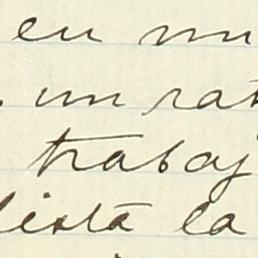 en mi
un rat
trabaj
lista la